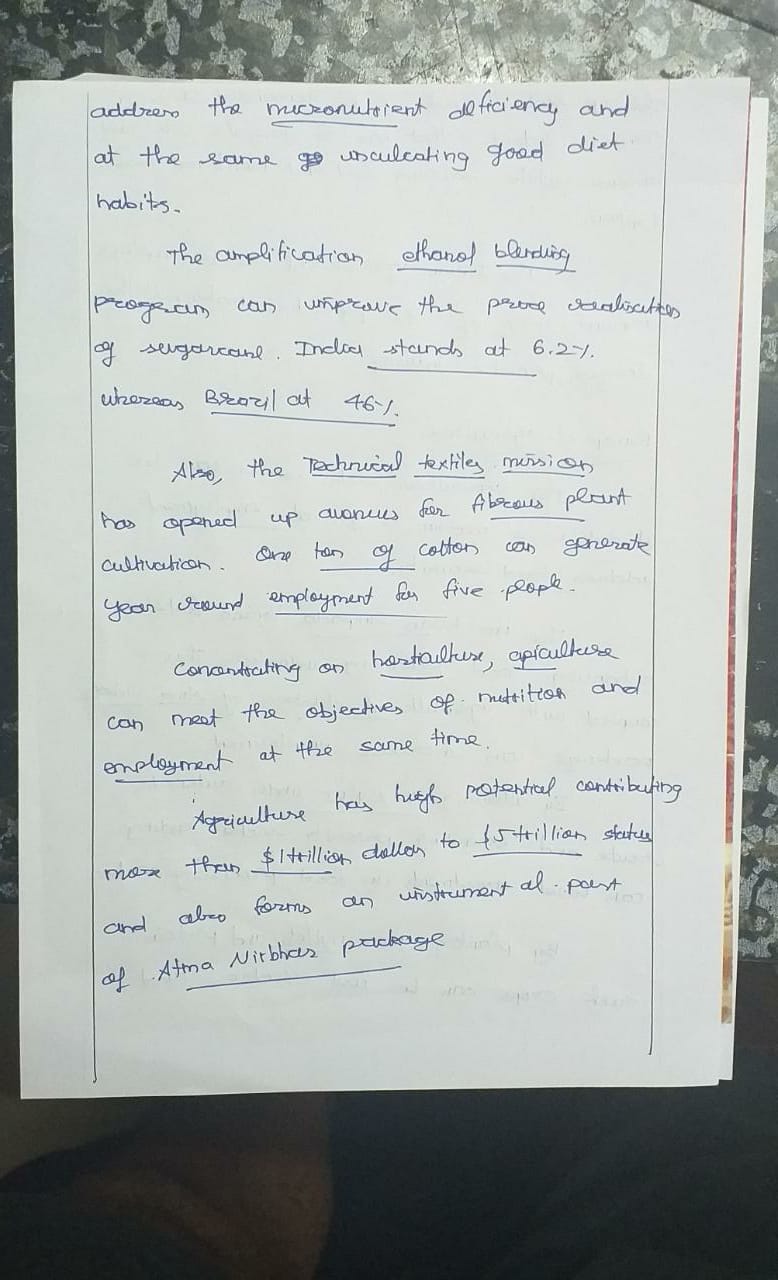 address the micronutrient deficiency and
at the same go inculcating good diet
habits.
The amplification ethanol blending
program can improve the price realisation
of sugarcane. India stands at 6.2%.
whereas Brazil at 46%.
Also, the Technical textiles mission
has opened up avenues for fibrous plant
cultivation. One ton of cotton can generate
year round employment for five people.
Concentrating on horticulture, apiculture
can meet the objectives of nutrition and
employment at the same time.
Agriculture has high potential contributing
more than $1 trillion dollar to $5 trillion status
and also forms an instrumental part
of Atma Nirbhar package